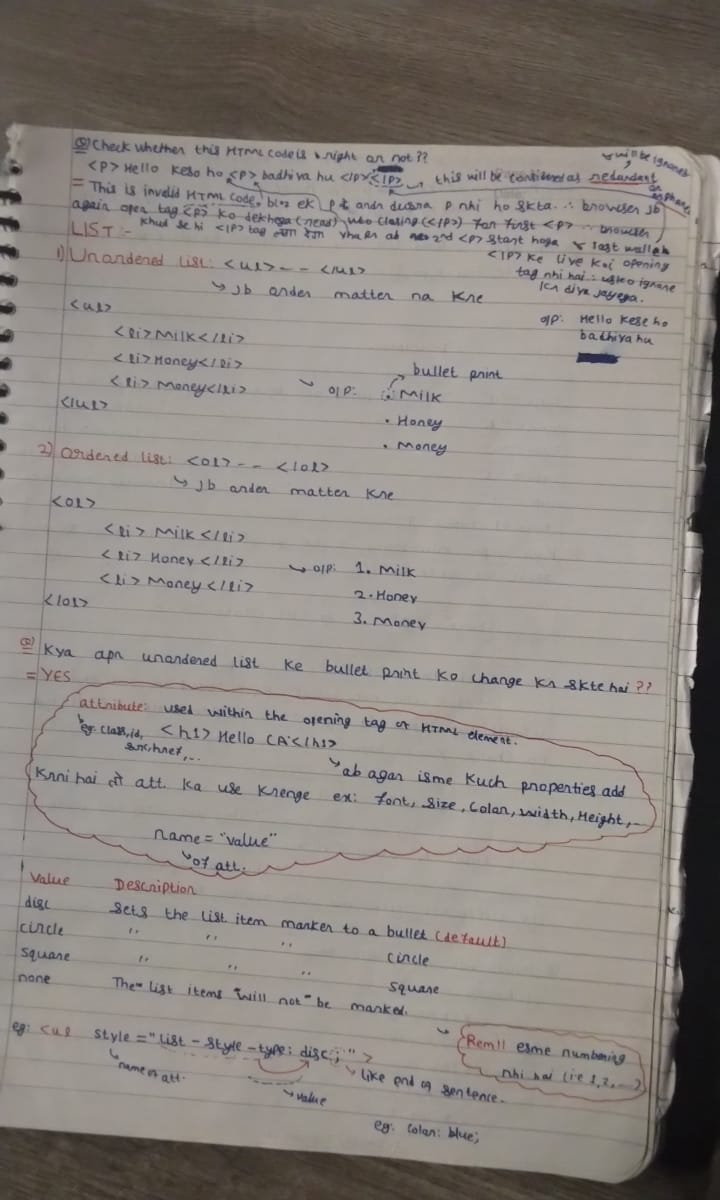 Q) Check whether this HTML code is right or not ??
<P> Hello kese ho <P> badhiya hu </P> </P> this will be considered as redundant
will be ignored
or
= This is invalid HTML Code, bcoz ek P k andr dusra P nhi ho skta. ∴ browser jb
again open tag <P> ko dekhega (read) wo closing (</P>) for first <P> ∴ browser
khud se hi </P> tag vha pr ab 2nd <P> start hoga & last wallah
</P> ke liye koi opening
tag nhi hai ∴ usko ignore
kr diya jayega.
O/P: Hello kese ho
badhiya hu
LIST :-
1) Unordered list: <ul> - - </ul>
↳ Jb order matter na kre
<ul>
<li> Milk </li>
<li> Honey </li>
<li> Money </li>
</ul>
↳ O/P:
bullet print
• Milk
• Honey
• Money
2) Ordered list: <ol> - - </ol>
↳ Jb order matter kre
<ol>
<li> Milk </li>
<li> Honey </li>
<li> Money </li>
</ol>
↳ O/P: 1. Milk
2. Honey
3. Money
Q) Kya apn unordered list ke bullet print ko change kr skte hai ??
= YES
attribute: used within the opening tag of HTML element.
eg: class, id, src, href, ...
<h1> Hello CA </h1>
↳ ab agar isme kuch properties add
krni hai तो att. ka use krenge ex: font, size, Color, width, Height, -
name = "value"
↳ of att.
Value Description
disc Sets the list item marker to a bullet (default)
circle " " " circle
square " " " square
none The list items "will not" be marked.
Rem!! esme numbering
nhi hai (ie 1, 2, ...)
eg: <ul style = "list - style - type : disc ; " >
↳ name of att.
↳ value
↳ like end of sentence.
eg: Color: blue;